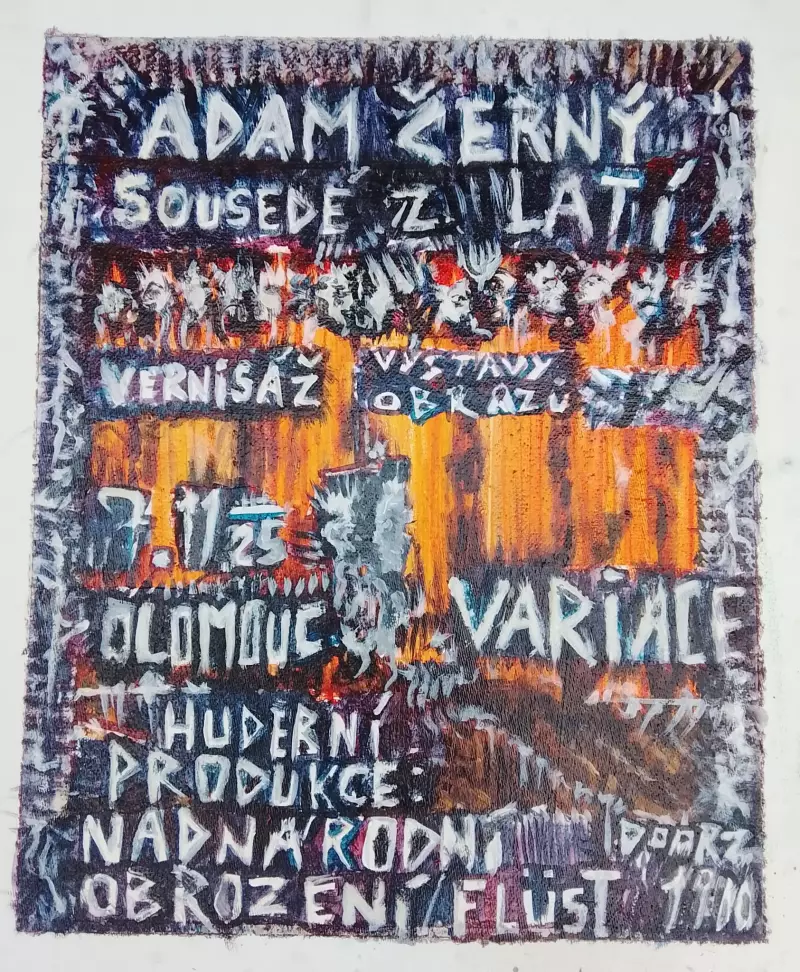 ADAM ČERNÝ
SOUSEDÉ Z LATÍ
VERNISÁŽ VÝSTAVY
OBRAZŮ
7.11.25
OLOMOUC VARIACE
HUDEBNÍ
PRODUKCE:
NADNÁRODNÍ
OBROZENÍ/FLÜST